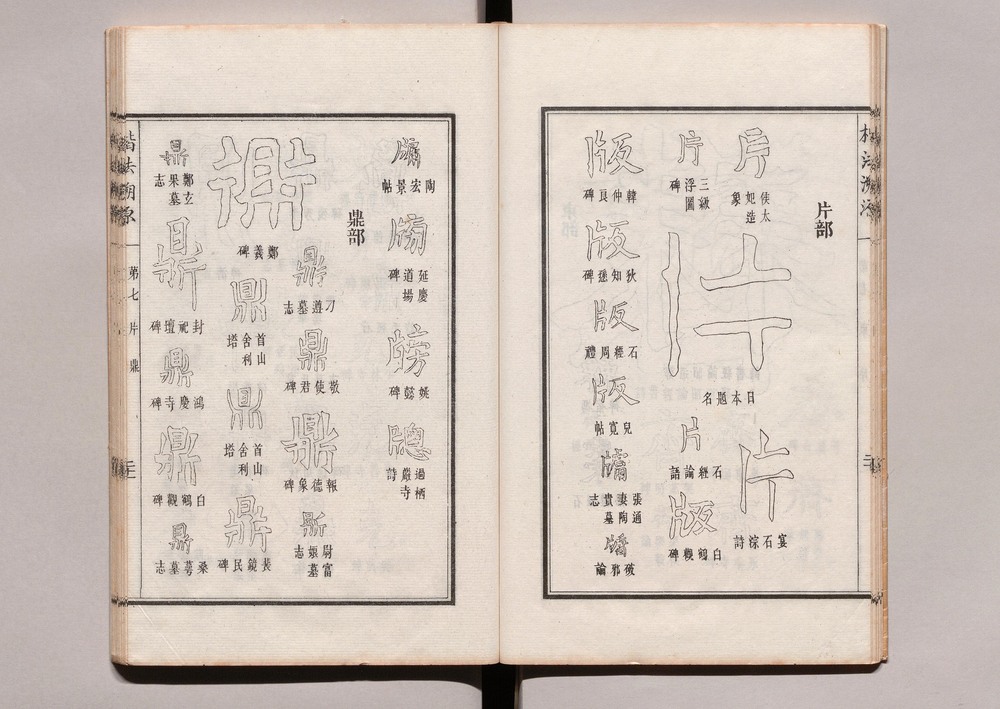 片部
片
侯太妃造象
片
日本題名
片
宴石淙詩
片
三級浮圖碑
片
石經論語
版
白鶴觀碑
版
韓仲良碑
版
狄知愻碑
版
石經周禮
版
兒寬帖
牖
張通妻陶貴墓志
牖
破邪論
牖
陶宏景帖
牖
延慶道場碑
牓
姚懿碑
牕
過栖嚴寺詩
鼎部
鼎
鄭羲碑
鼎
刀遵墓志
鼎
敬使君碑
鼎
報德象碑
鼎
尉富娘墓志
鼎
首山舍利塔
鼎
首山舍利塔
鼎
裴鏡民碑
鼎
鄭玄果墓志
鼎
封祀壇碑
鼎
鴻慶寺碑
鼎
白鶴觀碑
鼎
桑萼墓志
楷法溯源
第七 片 鼎